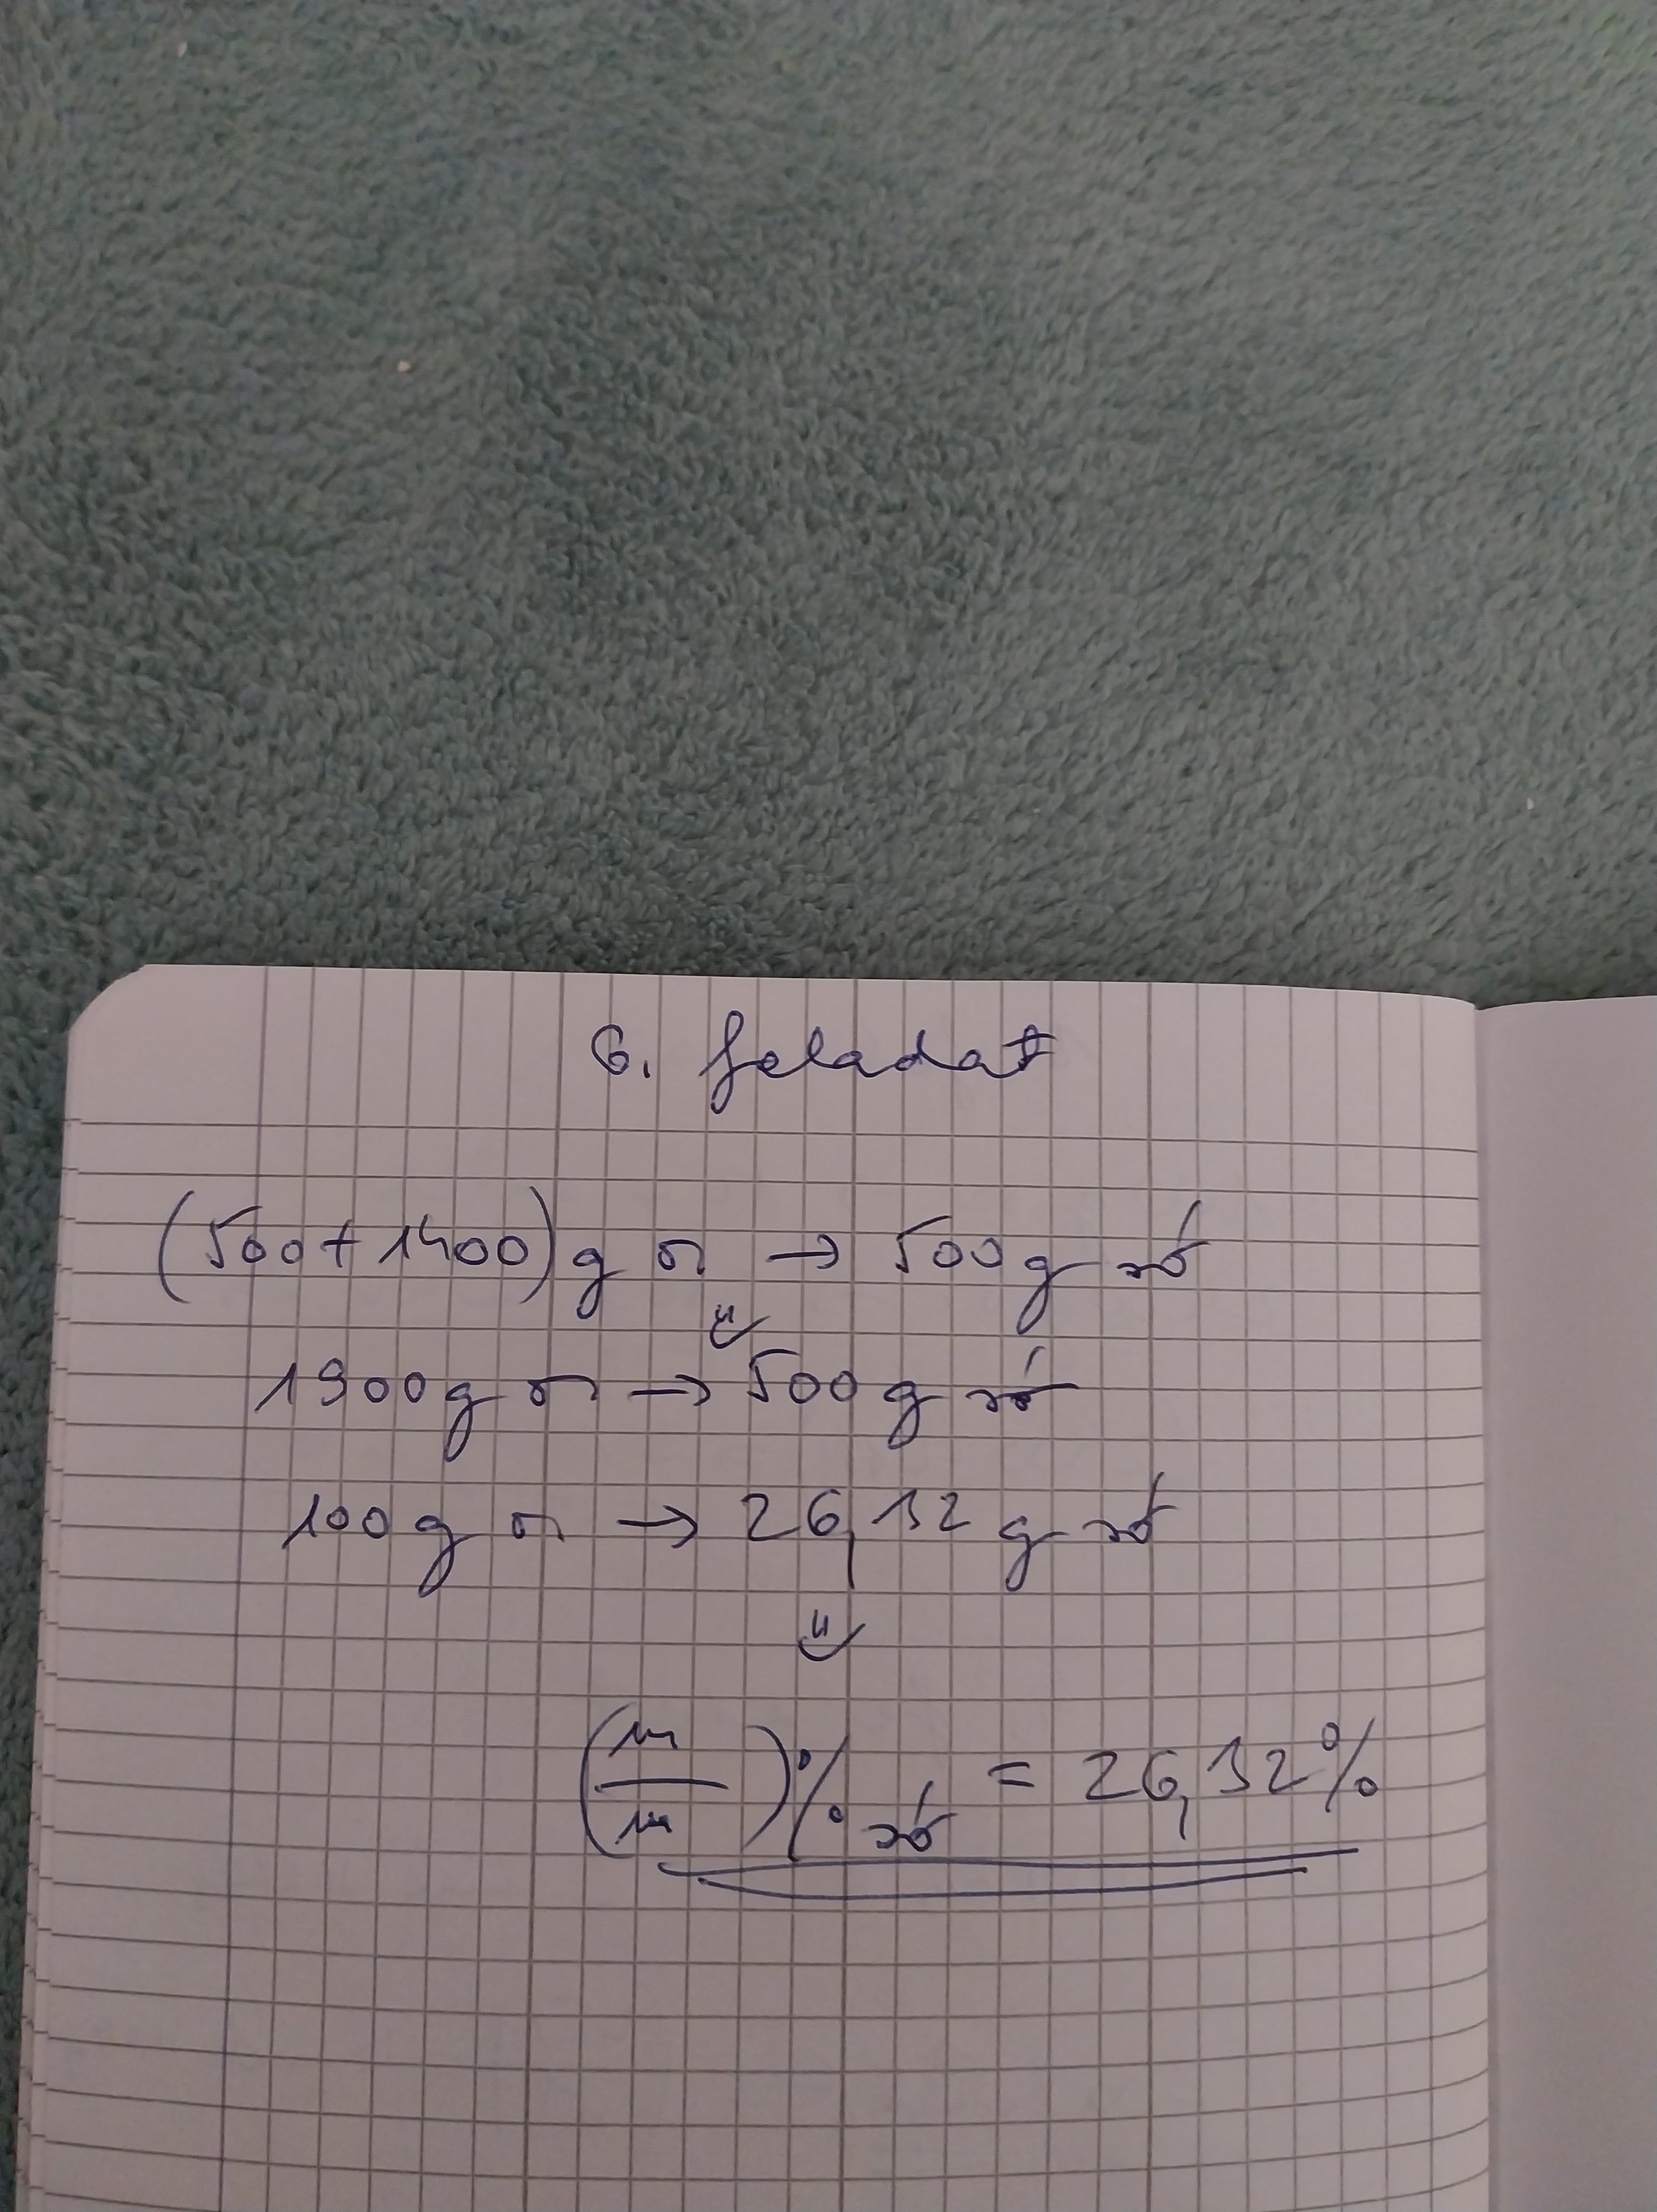 6. feladat
(500+1400) g o → 500 g só
⇓
1900 g o → 500 g só
100 g o → 26,32 g só
⇓
(m/m)% só = 26,32%